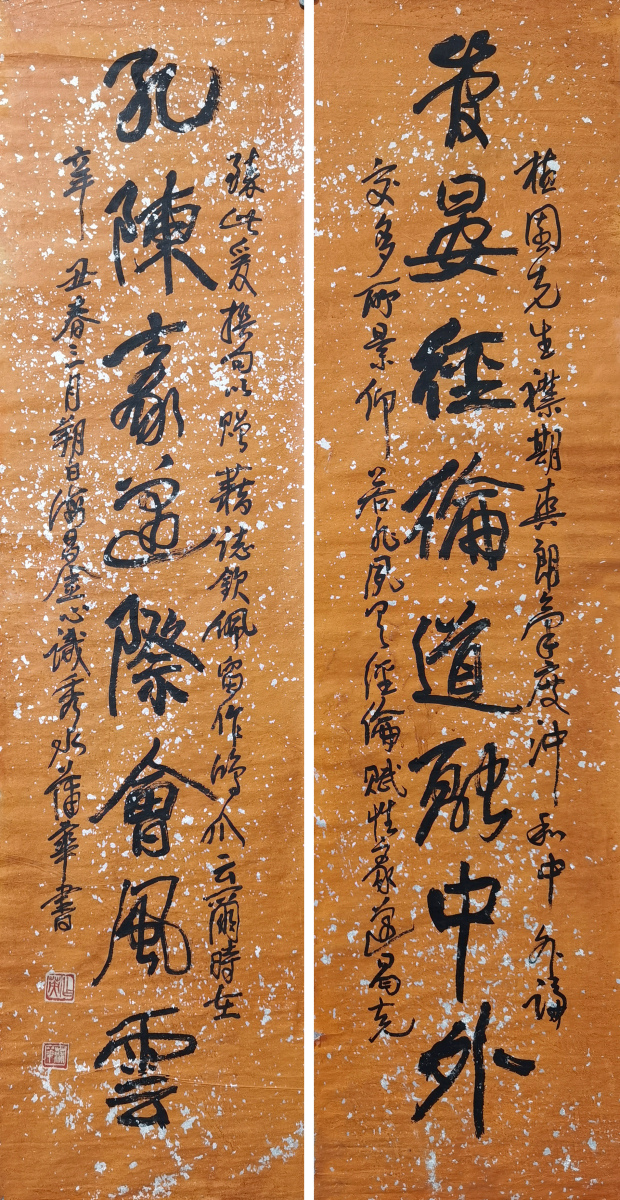 植園先生襟期爽朗氣度沖和中外論
管晏經綸道融中外
交多所景仰若非夙具經綸賦性豪邁曷克
臻此爰撰句以贈藉誌欽佩留作鴻爪云爾時在
孔陳豪邁際會風雲
辛丑春三月朔日海昌金心識秀水蒲華書